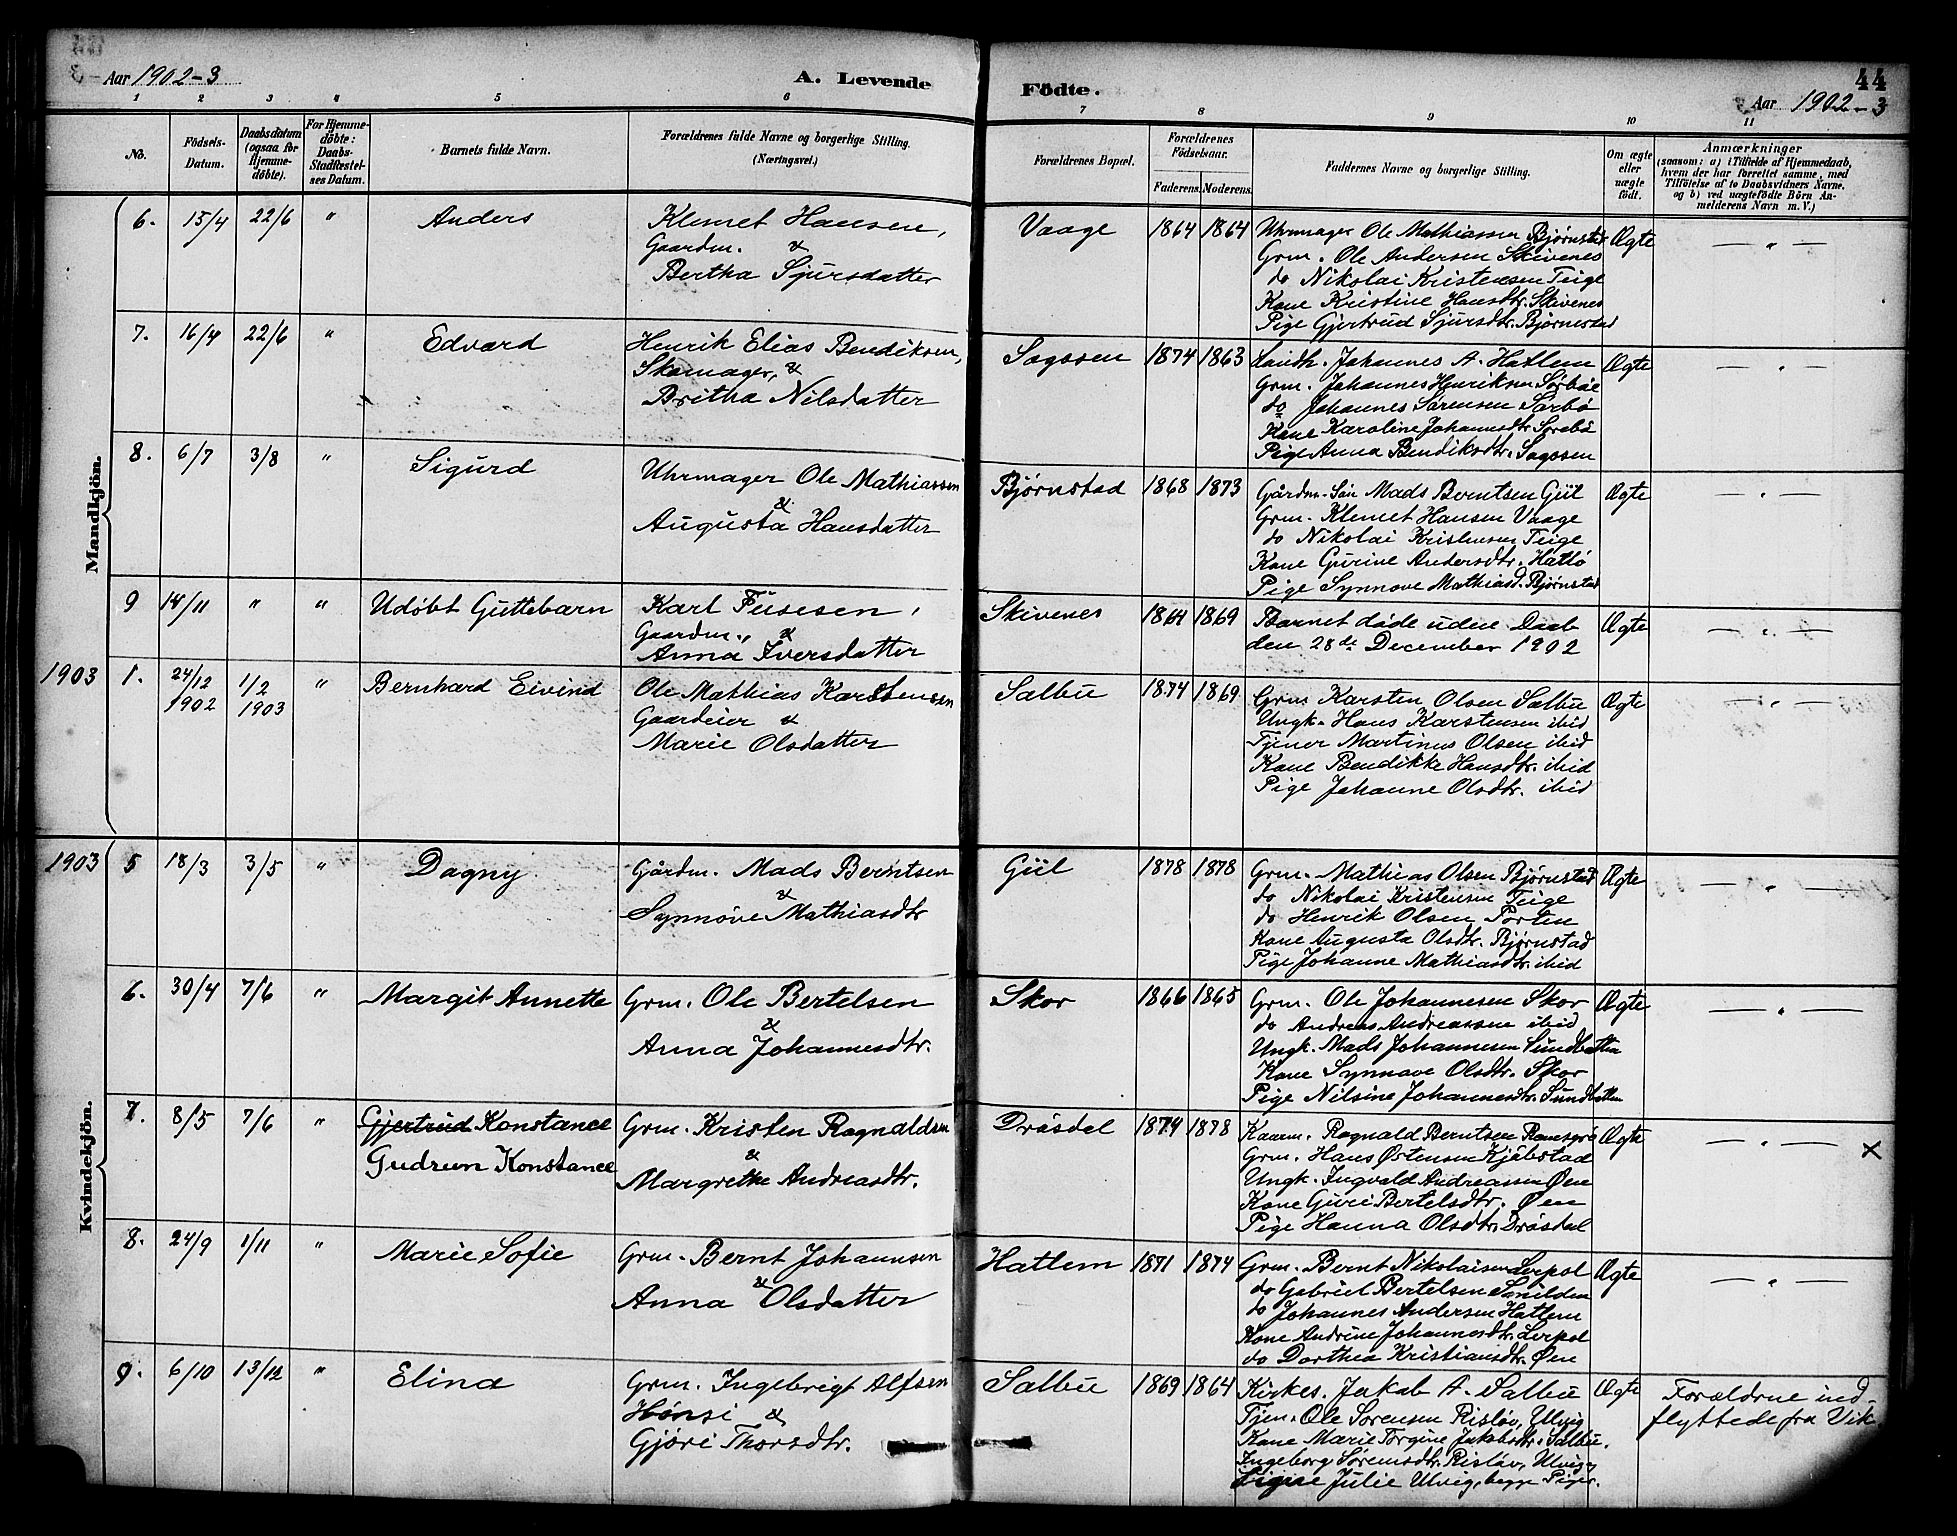 Aar 1902-3
A. Levende
Födte.
44
Aar 1902-3
1 2 3 4 5 6 7 8 9 10 11
No.
Födsels-
Datum.
Daabsdatum
(ogsaa for
Hjemme-
döbte).
For Hjemme-
döbte:
Daabs-
Stadfæstel-
ses Datum.
Barnets fulde Navn.
Forældrenes fulde Navne og borgerlige Stilling.
(Næringsvei.)
Forældrenes Bopæl.
Forældrenes
Födselsaar.
Faderens. Moderens.
Faddernes Navne og borgerlige Stilling.
Om ægte
eller
uægte
födt.
Anmærkninger
(saasom: a) i Tilfælde af Hjemmedaab,
hvem der har forrettet samme, med
Tilföielse af to Daabsvidners Navne,
og b) ved uægtefödte Börn An-
melderens Navn m. V.)
Mandkjön.
6. 15/4 22/6 " Anders
Klemet Hansen,
Gaardm. &
Bertha Sjursdatter
Vaage 1864 1864
Uhrmager Ole Mathiassen Bjørnstad
Grm. Ole Andersen Skivenes
do Nikolai Kristensen Teige
Kone Kristine Hansdtr. Skivenes
Pige Gjertrud Sjursdtr. Bjørnestad
Ægte — " —
7. 16/4 22/6 " Edvard
Henrik Elias Bendiksen,
Skomager, &
Britha Nilsdatter
Sagosen 1874 1863
Landh. Johannes A. Hatlem
Grm. Johannes Henriksen Sörböe
do Johannes Sörensen Sörbö
Kone Karoline Johannesdtr. Sörebö
Pige Anna Bendiksdtr. Sagosen
Ægte — " —
8. 6/7 3/8 " Sigurd
Uhrmager Ole Mathiassen
&
Augusta Hansdatter
Bjørnstad 1868 1873
Gårdm. Søn Mads Berntsen Giil
Grm. Klemet Hansen Vaage
do Nikolai Kristensen Teige
Kone Gurine Andersdtr. Hatlö
Pige Synnove Mathiasd. Bjørnstad
Ægte — " —
9 14/11 " " Udöbt Guttebarn
Karl Fusesen,
Gaardm., &
Anna Iversdatter
Skivenes 1864 1869
Barnet döde uden Daab
den 28de December 1902
Ægte — " —
1903 1. 24/12 1902 1/2 1903 " Bernhard Eivind
Ole Mathias Karstensen
Gaardeier &
Marie Olsdatter
Salbu 1874 1869
Grm Karsten Olsen Salbu
Ungk. Hans Karstensen ibid
Tjener Martinus Olsen ibid
Kone Bendikke Hansdtr. ibid
Pige Johanne Olsdtr. ibid
Ægte — " —
Kvindekjön.
1903 5 18/3 3/5 " Dagny
Gårdm. Mads Berntsen
&
Synnöve Mathiasdtr
Giil 1878 1878
Grm. Mathias Olsen Bjørnstad
do Nikolai Kristensen Teige
do Henrik Olsen Porten
Kone Augusta Olsdtr. Bjørnstad
Pige Johanne Mathiasdtr. ibid
Ægte — " —
6. 30/4 7/6 " Margit Annette
Grm. Ole Bertelsen
&
Anna Johannesdtr.
Skor 1866 1865
Grm. Ole Johannesen Skor
do Andreas Andreassen ibid
Ungk. Mads Johannesen Sundbotten
Kone Synnave Olsdtr. Skor
Pige Nilsine Johannesdtr. Sundbotten
Ægte — " —
7. 8/5 7/6 " Gjertrud Konstance
Gudrun Konstance
Grm. Kristen Ragnaldsen
&
Margrethe Andreasdtr.
Dråsdal 1874 1878
Kaarm. Ragnald Berntsen
Grm. Hans Østensen Kjøbstad
Ungk. Ingvald Andreassen Øen
Kone Guri Bertelsdtr. Øen
Pige Hanna Olsdtr. Dråsdal
Ægte — " — ×
8. 24/9 1/11 " Marie Sofie
Grm. Bernt Johannsen
&
Anna Olsdatter
Hatlem 1871 1874
Grm. Bernt Nikolaisen Lerpol
do Gabriel Bertelsen
do Johannes Andersen Hatlem
Kone Andrine Johannesdtr. Lerpol
do Dorthea Kristiansdtr. Øen
Ægte — " —
9. 6/10 13/12 " Elina
Grm. Ingebrigt Alfsen
Hönsi &
Gjöri Thorsdtr.
Salbu 1869 1864
Kirkes. Jakob A. Salbu
Tjen. Ole Sörensen Rislöv, Ulvig
Kone Marie Torgine Jakobsdtr. Salbu.
Ingeborg Sörensdtr. Rislöv, Ulvig,
Signe Julie Ulvig, begge Piger.
Ægte
Forældrene ind-
flyttede fra Vik.